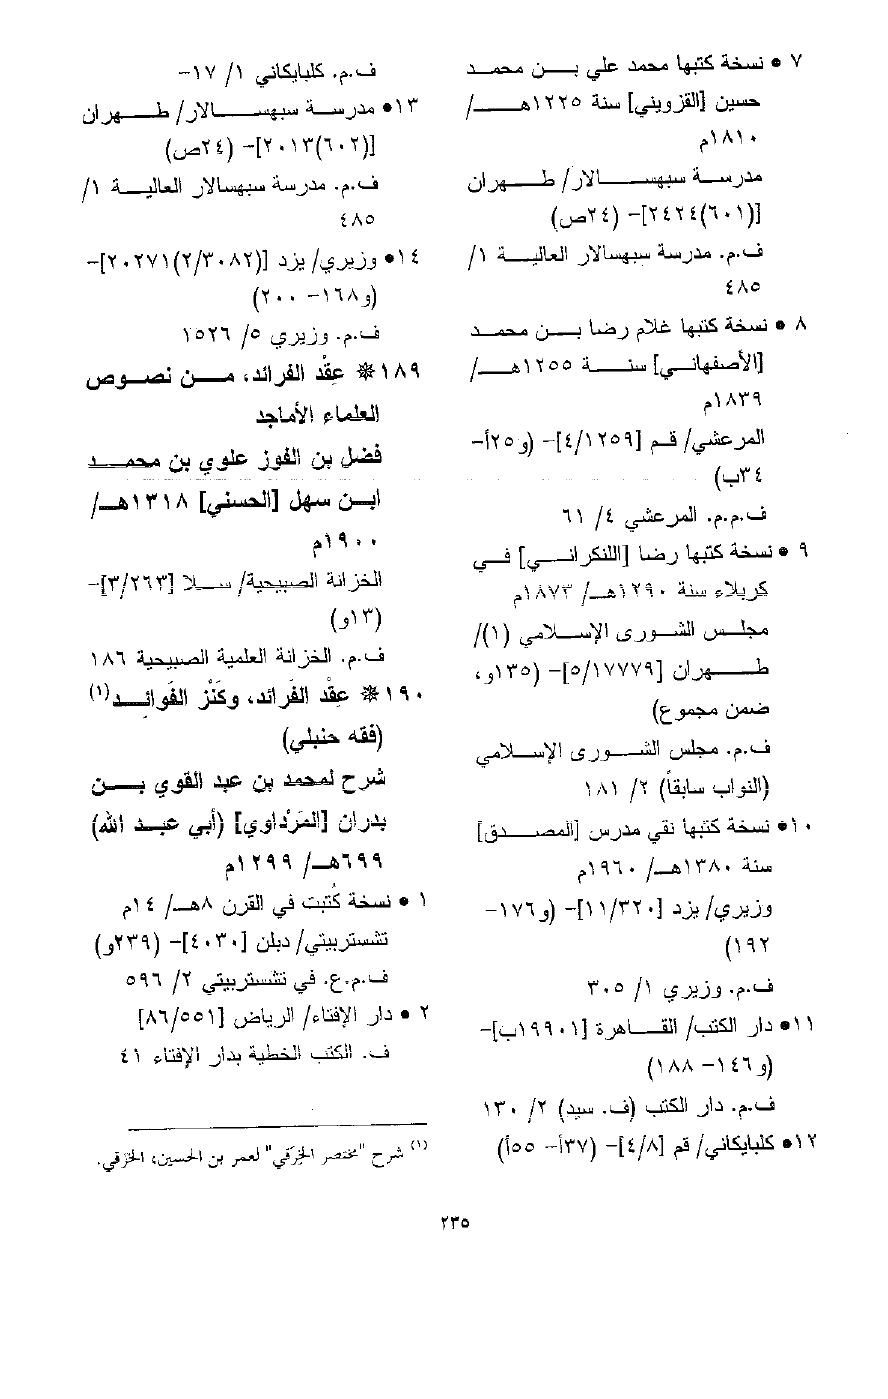 ٧ • نسخة كتبها محمد علي بن محمد
حسين [القزويني] سنة ١٢٢٥هـ/
١٨١٠م
مدرسة سبهسالار/ طهران
[(٦٠١)٢٤٢٤]- (٢٤ص)
ف.م. مدرسة سبهسالار العالية ١/
٤٨٥
٨ • نسخة كتبها غلام رضا بن محمد
[الأصفهاني] سنة ١٢٥٥هـ/
١٨٣٩م
المرعشي/ قم [٤/١٢٥٩]- (و٢٥أ-
٣٤ب)
ف.م.م. المرعشي ٤/ ٦١
٩ • نسخة كتبها رضا [اللنكراني] في
كربلاء سنة ١٢٩٠هـ/ ١٨٧٣م
مجلس الشورى الإسلامي (١)/
طهران [٥/١٧٧٧٩]- (١٣٥و،
ضمن مجموع)
ف.م. مجلس الشورى الإسلامي
(النواب سابقاً) ٢/ ١٨١
١٠• نسخة كتبها نقي مدرس [المصدق]
سنة ١٣٨٠هـ/ ١٩٦٠م
وزيري/ يزد [١١/٣٢٠]- (و١٧٦-
١٩٢)
ف.م. وزيري ١/ ٣٠٥
١١• دار الكتب/ القاهرة [١٩٩٠١ب]-
(و١٤٦- ١٨٨)
ف.م. دار الكتب (ف. سيد) ٢/ ١٣٠
١٢• كلبايكاني/ قم [٤/٨]- (٣٧أ- ٥٥أ)
ف.م. كلبايكاني ١/ ١٧-
١٣• مدرسة سبهسالار/ طهران
[(٦٠٢)٢٠١٣]- (٢٤ص)
ف.م. مدرسة سبهسالار العالية ١/
٤٨٥
١٤• وزيري/ يزد [(٢/٣٠٨٢)٢٠٢٧١]-
(و١٦٨- ٢٠٠)
ف.م. وزيري ٥/ ١٥٢٦
١٨٩ ❋ عِقْد الفرائد، من نصوص
العلماء الأماجد
فضل بن الفوز علوي بن محمد
ابن سهل [الحسني] ١٣١٨هـ/
١٩٠٠م
الخزانة الصبيحية/ سلا [٣/٢٦٣]-
(١٣و)
ف.م. الخزانة العلمية الصبيحية ١٨٦
١٩٠ ❋ عِقْد الفَرائد، وكَنْز الفَوائِد(١)
(فقه حنبلي)
شرح لمحمد بن عبد القوي بن
بدران [المَرْداوي] (أبي عبد الله)
٦٩٩هـ/ ١٢٩٩م
١ • نسخة كُتبت في القرن ٨هـ/ ١٤م
تشستربيتي/ دبلن [٤٠٣٠]- (٢٣٩و)
ف.م.ع. في تشستربيتي ٢/ ٥٩٦
٢ • دار الإفتاء/ الرياض [٨٦/٥٥١]
ف. الكتب الخطية بدار الإفتاء ٤١
(١) شرح "مختصر الخِرَقي" لعمر بن الحسين، الخِرَقي.
٢٣٥